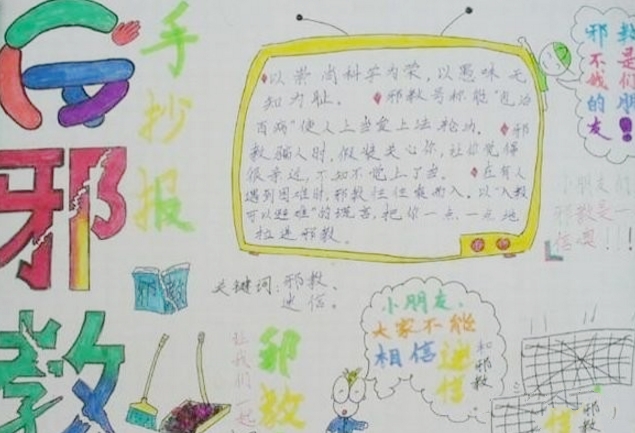 邪
教
手
抄
报
以崇尚科学为荣，以愚昧无
知为耻。 邪教号称能"包治
百病"使人上当爱上法轮功。 邪
教骗人时，假装关心你，让你觉得
很亲近，不知不觉上了当。 在有人
遇到困难时，邪教往往乘而入。以"入教
可以避难"的谎言，把你一点一点地
拉进邪教。
关键词：邪教、
迷信。
邪教
让我们一起
邪
教
小朋友，
大家不能
相信迷信
和邪教
邪教是
不我们
的友
小朋友们
邪教是一
信
邪教